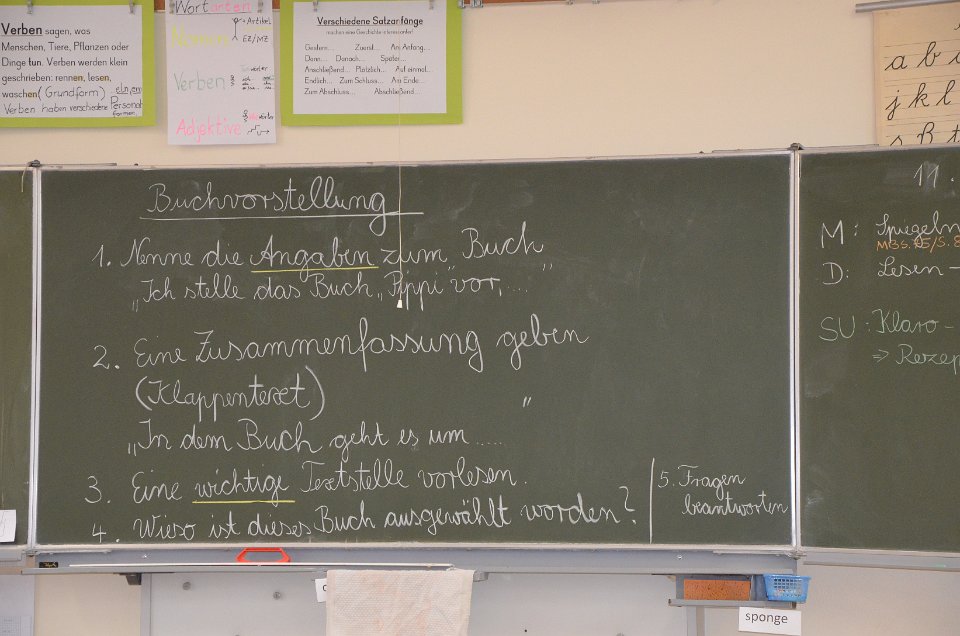 Verben sagen, was
Menschen, Tiere, Pflanzen oder
Dinge tun. Verben werden klein
geschrieben: rennen, lesen,
waschen (Grundform)
Verben haben verschiedene Personalformen.
Wortarten
Artikel
EZ/MZ
Verben
Adjektive
Verschiedene Satzanfänge
machen eine Geschichte interessanter!
Gestern... Zuerst... Am Anfang...
Dann... Danach... Später...
Anschließend... Plötzlich... Auf einmal...
Endlich... Zum Schluss... Am Ende...
Zum Abschluss... Abschließend...
a b
j k l
s ß t
Buchvorstellung
1. Nenne die Angaben zum Buch
„Ich stelle das Buch „Pippi" vor, ...."
2. Eine Zusammenfassung geben
(Klappentext)
„In dem Buch geht es um ....."
3. Eine wichtige Textstelle vorlesen.
4. Wieso ist dieses Buch ausgewählt worden?
5. Fragen
beantworten
11.
M: Spiegeln
D: Lesen -
SU: Klaro -
⇒ Rezep
sponge